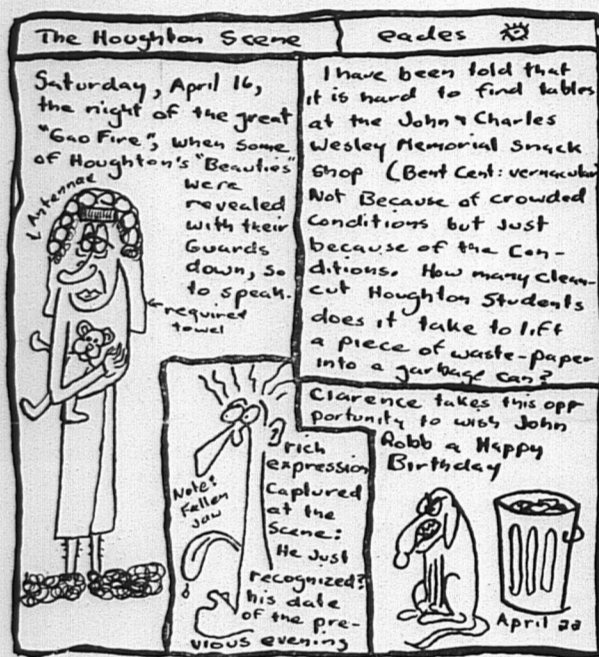 The Houghton Scene
eades
Saturday, April 16,
the night of the great
"Gao Fire", when some
of Houghton's "Beauties"
were
revealed
with their
Guards
down, so
to speak.
Antennae
required
towel
Note:
Fallen
jaw
rich
expression
Captured
at the
Scene:
He just
recognized?
his date
of the pre-
vious evening
I have been told that
it is hard to find tables
at the John & Charles
Wesley Memorial Snack
Shop (Bent Cent: vernacular)
Not Because of crowded
conditions but just
because of the Con-
ditions. How many clean-
cut Houghton Students
does it take to lift
a piece of waste-paper
into a garbage can?
Clarence takes this opp
portunity to wish John
Robb a Happy
Birthday
April 22